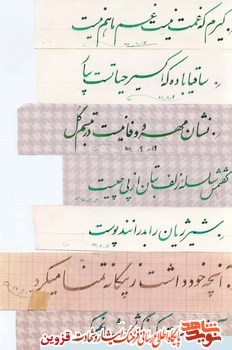 گیرم که غمت نیست غم ما هم نیست
ساقیا باده که اکسیر حیاتست بیار
نشان مهر و وفا نیست در تبسم گل
گفتمش سلسله زلف بتان از پی چیست
شیر ژیان را بدرانند پوست
آنچه خود داشت ز بیگانه تمنا میکرد
نوید شاهد
پایگاه اطلاع رسانی فرهنگ ایثار و شهادت قزوین